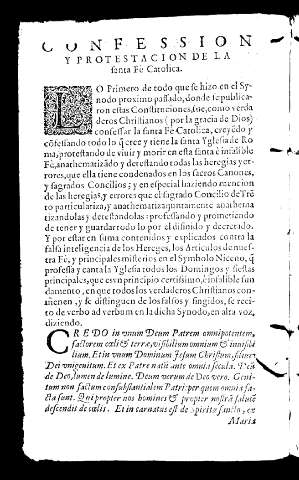 CONFESSION
Y PROTESTACION DE LA
santa Fè Catolica.
LO Primero de todo que se hizo en el Sy-
nodo proximo passado, donde se publica-
ron estas Constituciones, fue, como verda
deros Christianos (por la gracia de Dios)
confessar la santa Fè Catolica, creyẽdo y
cõfessando todo lo q̃ cree y tiene la santa Yglesia de Ro
ma, protestando de viuir y morir en esta santa è infalible
Fè, anathematizãdo y detestando todas las heregias y er-
rores, que ella tiene condenados en los sacros Canones,
y sagrados Concilios; y en especial haziendo mencion
de las heregias, y errores que el sagrado Concilio de Trẽ
to particulariza, y anathematiza: juntamente anathema
tizandolas y detestandolas: professando y prometiendo
de tener y guardar todo lo por el difinido y decretado.
Y por estar en suma contenidos y explicados contra la
falsa inteligencia de los Hereges, los Articulos de nues-
tra Fè, y principales misterios en el Symbolo Niceno, q̃
professa y canta la Yglesia todos los Domingos y fiestas
principales, que es vn principio certissimo, è infalible fun
damento, en que todos los verdaderos Christianos con-
uienen, y se distinguen de los falsos y fingidos, se reci-
to de verbo ad verbum en la dicha Synodo, en alta voz,
diziendo.
CREDO in vnum Deum Patrem omnipotentem,
factorem cœli & terræ, visibilium omnium & inuisibi
lium. Et in vnum Dominum Iesum Christum, filium
Dei vnigenitum. Et ex Patre natũ ante omnia secula. Deũ
de Deo, lumen de lumine, Deum verum de Deo vero. Geni-
tum non factum consubstantialem Patri: per quem omnia fa-
cta sunt. Qui propter nos homines & propter nostrã salutẽ
descendit de cœlis. Et incarnatus est de Spiritu sancto, ex
Maria